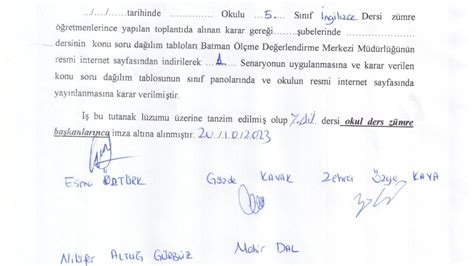 ...../...../.......... tarihinde ................ Okulu ....5.... Sınıf İngilizce Dersi zümre
öğretmenlerince yapılan toplantıda alınan karar gereği........şubelerinde ........................
dersinin konu soru dağılım tabloları Batman Ölçme Değerlendirme Merkezi Müdürlüğünün
resmi internet sayfasından indirilerek ....1.... Senaryonun uygulanmasına ve karar verilen
konu soru dağılım tablosunun sınıf panolarında ve okulun resmi internet sayfasında
yayınlanmasına karar verilmiştir.
İş bu tutanak lüzumu üzerine tanzim edilmiş olup dersi okul ders zümre
başkanlarınca imza altına alınmıştır. 20/10/2023
Esma ÖZTÜRK Gözde KAVAK Zehra Özge KAYA
Nilüfer ALTUĞ GÜRBÜZ Mahir DAL